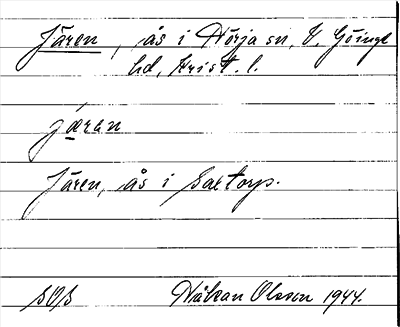 Jären, ås i Nörja sn, V. Göinge
hd, Krist. l.
jæran
Jären, ås i Saxtorp.
SOS
Håkan Olsson 1944.